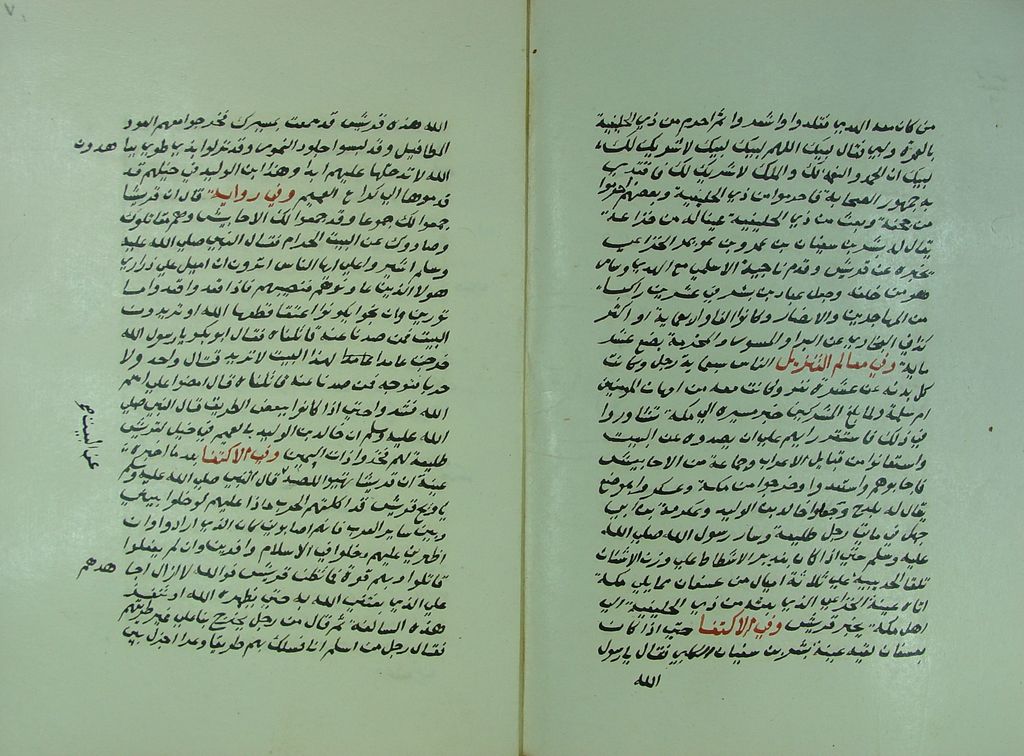 من كان معه الهدي فقلدوا واشعروا ثم احرم من ذي الحليفة
بالعمرة ولبي فقال لبيك اللهم لبيك لبيك لا شريك لك
لبيك ان الحمد والنعمة لك والملك لا شريك لك فاقتدي
به جمهور الصحابة فاحرموا من ذي الحليفة وبعضهم احرموا
من جحفة وبعث من ذي الحليفة عينا له من خزاعة
يقال له بشر بن سفيان بن عمرو بن عويمر الخزاعي
يخبره عن قريش وقدم ناجية الاسلمي مع الهدي وسار
هو من خلفه وجعل عباد بن بشر في عشرين راكبا
من المهاجرين والانصار وكانوا الفا واربعماية او اكثر
كذا في البخاري عن البرا والمسور والمخرمة بضع عشر
ماية وفي معالم التنزيل الناس سبعماية رجل وكانت
كل بدنة عن عشرة نفر وكانت معه من امهات المومنين
ام سلمة ولما بلغ المشركين خبر مسيره الي مكة تشاوروا
في ذلك فاستقر رايهم علي ان يصدوه عن البيت
واستعانوا من قبايل الاعراب وجماعة من الاحابيش
فاجابوهم واستعدوا وخرجوا من مكة وعسكروا بموضع
يقال له بلدح وجعلوا خالد بن الوليد وعكرمة بن ابي
جهل في مايتي رجل طليعة وسار رسول الله صلي الله
عليه وسلم حتي اذا كان بغدير الاشطاط علي وزن الاشتات
تلقا الحديبية علي ثلاثة اميال من عسفان مما يلي مكة
اتاه عينه الخزاعي الذي بعثه من ذي الحليفة الي
اهل مكة يخبر قريش وفي الاكتفا حتي اذا كان
بعسفان لقيه عينه بشر بن سفيان الكعبي فقال يا رسول
الله
الله هذه قريش قد سمعت بمسيرك فخرجوا معهم العوذ
المطافيل وقد لبسوا جلود النمور وقد نزلوا بذي طوي يعاهدون
الله لا تدخلها عليهم ابدا وهذا بن الوليد في خيلهم قد
قدموها الي كراع الغميم وفي رواية قال ان قريشا
جمعوا لك جموعا وقد جمعوا لك الاحابيش وهم مقاتلوك
وصادوك عن البيت الحرام فقال النبي صلي الله عليه
وسلم اشيروا علي ايها الناس اترون ان اميل علي ذراري
هولا الذين عاونوهم فنصيبهم فاذا قعدوا قعدوا
موتورين وان نجوا يكونوا عنقا قطعها الله او تريدون
البيت فمن صدنا عنه قاتلناه فقال ابو بكر يا رسول الله
خرجت عامدا لهذا البيت لا تريد قتال واحد ولا
حربا فتوجه فمن صدنا عنه قاتلناه قال امضوا علي اسم
الله فنفذوا حتي اذا كانوا ببعض الطريق قال النبي صلي
الله عليه وسلم ان خالد بن الوليد بالغميم في خيل لقريش
طليعة لهم فخذوا ذات اليمين وفي الاكتفا بعد ما اخبره
عينه ان قريشا تهيوا للصد قال النبي صلي الله عليه وسلم
يا ويح قريش قد اكلتهم الحرب ماذا عليهم لو خلوا بيني
وبين ساير العرب فان هم اصابوني كان الذي ارادوا وان
اظهرني عليهم دخلوا في الاسلام وافرين وان لم يفعلوا
قاتلوا وبهم قوة فما تظن قريش فوالله لا ازال اجاهدهم
علي الذي بعثني الله به حتي يظهره الله او تنفرد
هذه السالفة ثم قال من رجل يخرج بنا علي غير طريقهم
فقال رجل من اسلم انا فسلك بهم طريقا وعرا اجزل بين